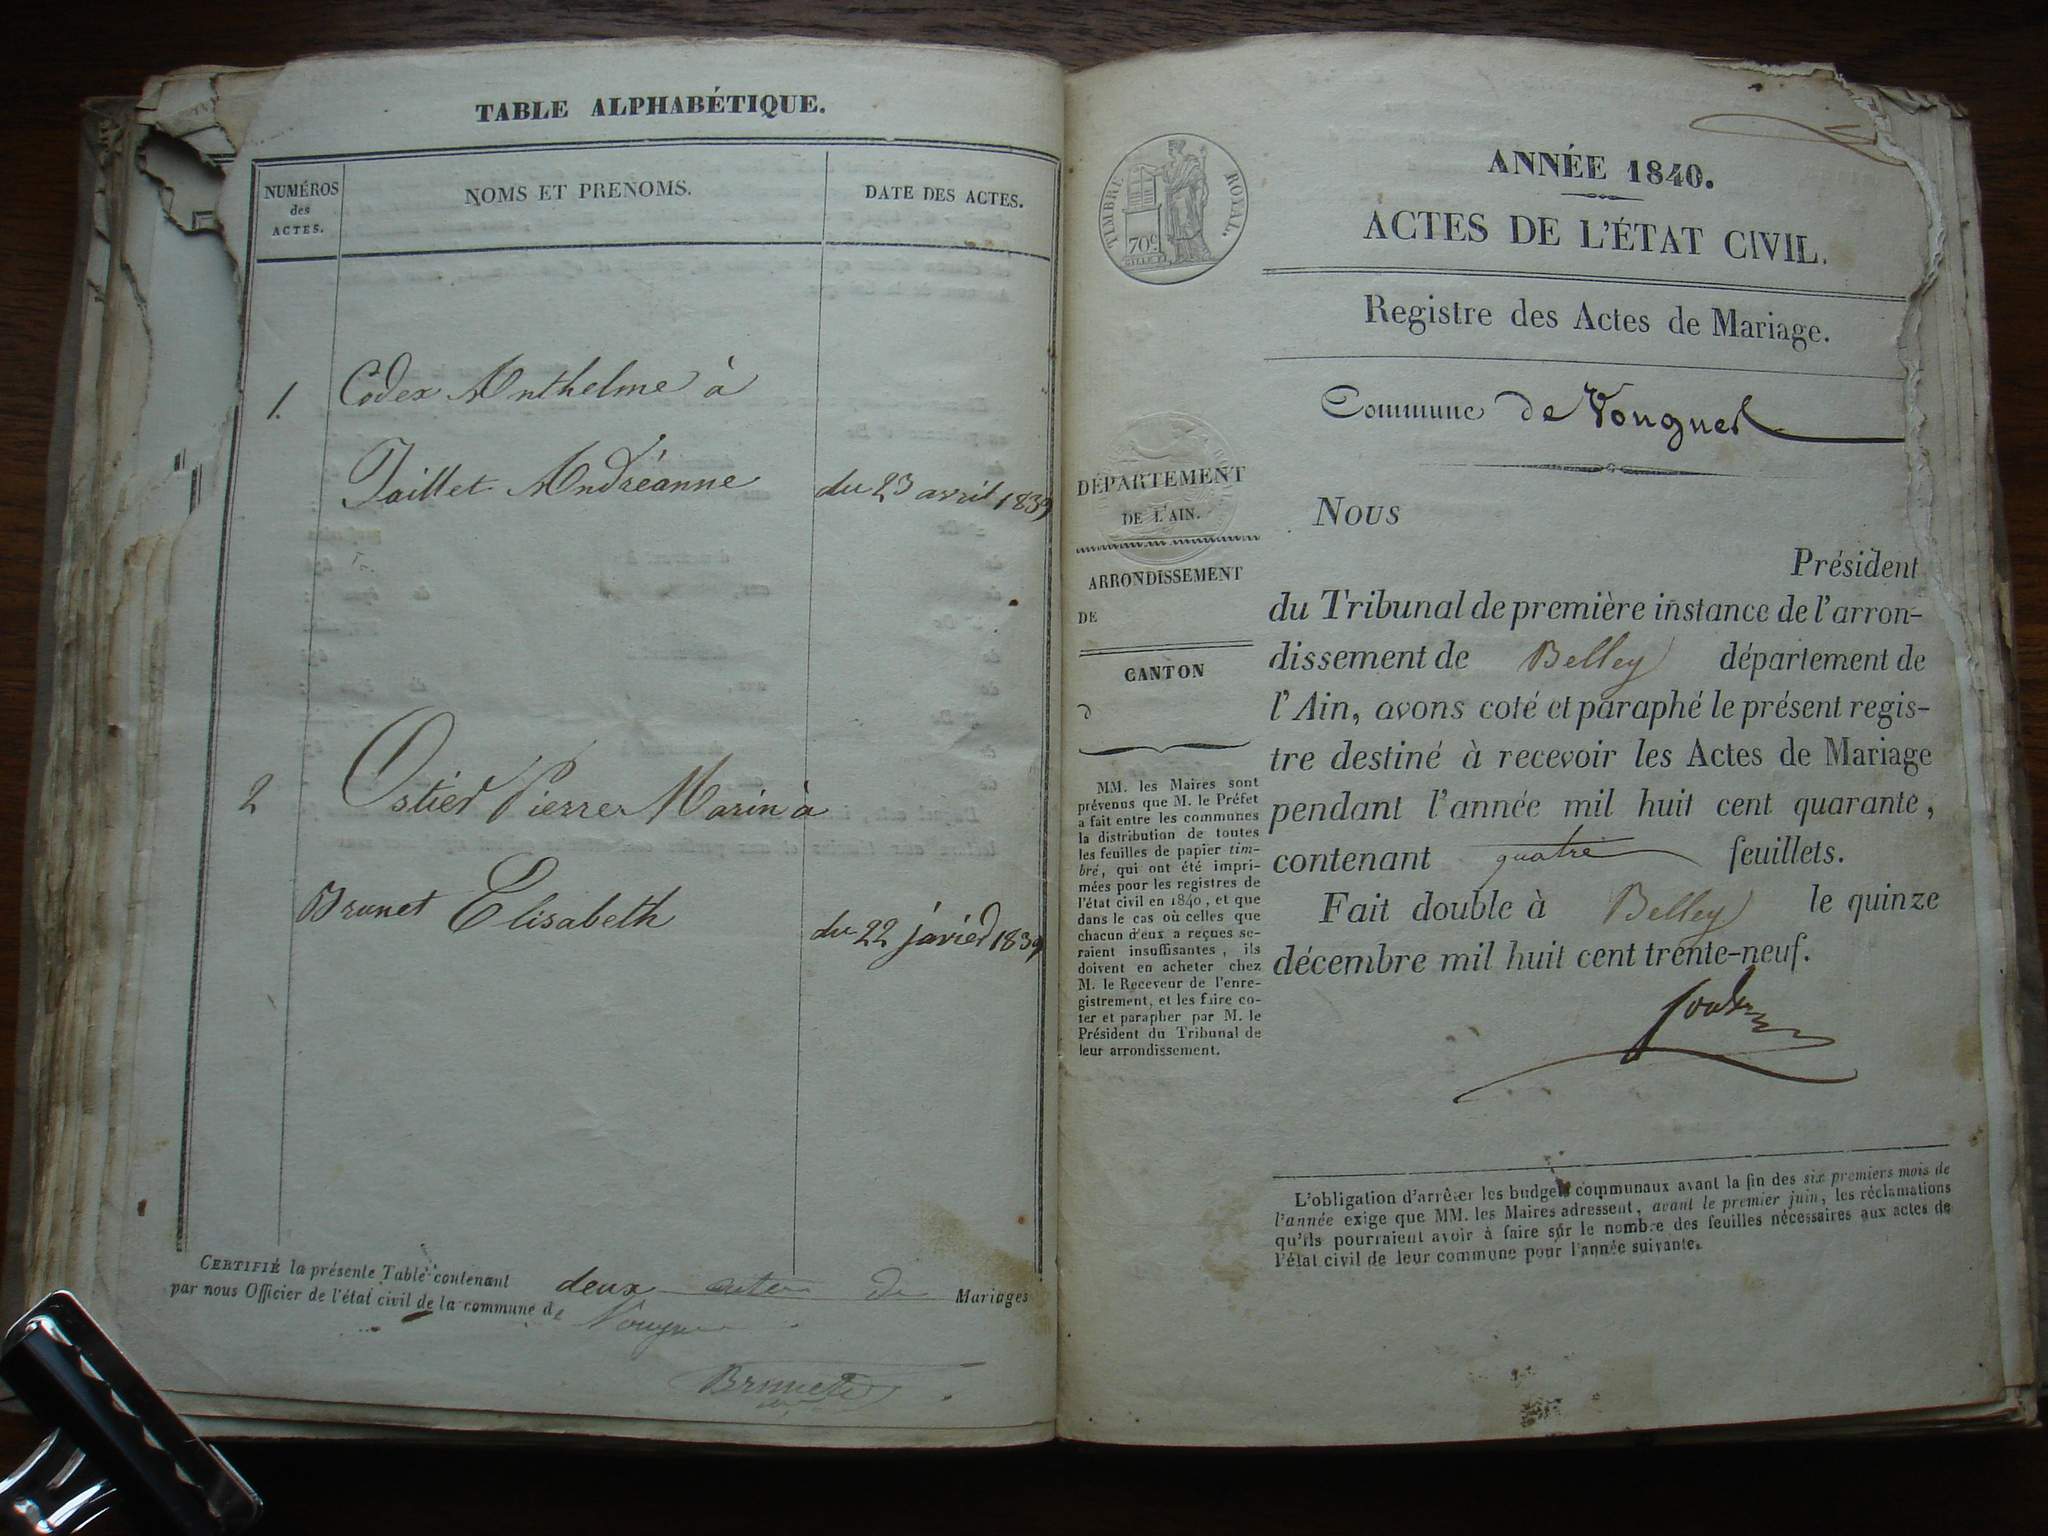 TABLE ALPHABÉTIQUE.
NUMÉROS
des
ACTES.
NOMS ET PRENOMS.
DATE DES ACTES.
1. Codex Anthelme à
Taillet Andréanne du 23 avril 1839
2 Ostier Pierre Marin à
Brunet Elisabeth du 22 javier 1839
CERTIFIÉ la présente Table contenant deux actes de Mariages
par nous Officier de l'état civil de la commune de
TIMBRE ROYAL.
70c
ANNÉE 1840.
ACTES DE L'ÉTAT CIVIL.
Registre des Actes de Mariage.
Commune de Vongnes
DÉPARTEMENT
DE L'AIN.
ARRONDISSEMENT
DE
CANTON
d
MM. les Maires sont
prévenus que M. le Préfet
a fait entre les communes
la distribution de toutes
les feuilles de papier tim-
bré, qui ont été impri-
mées pour les registres de
l'état civil en 1840, et que
dans le cas où celles que
chacun d'eux a reçues se-
raient insuffisantes, ils
doivent en acheter chez
M. le Receveur de l'enre-
gistrement, et les faire co-
ter et parapher par M. le
Président du Tribunal de
leur arrondissement.
Nous
Président
du Tribunal de première instance de l'arron-
dissement de Belley département de
l'Ain, avons coté et paraphé le présent regis-
tre destiné à recevoir les Actes de Mariage
pendant l'année mil huit cent quarante,
contenant quatre feuillets.
Fait double à Belley le quinze
décembre mil huit cent trente-neuf.
L'obligation d'arrêter les budgets communaux avant la fin des six premiers mois de
l'année exige que MM. les Maires adressent, avant le premier juin, les réclamations
qu'ils pourraient avoir à faire sur le nombre des feuilles nécessaires aux actes de
l'état civil de leur commune pour l'année suivante.